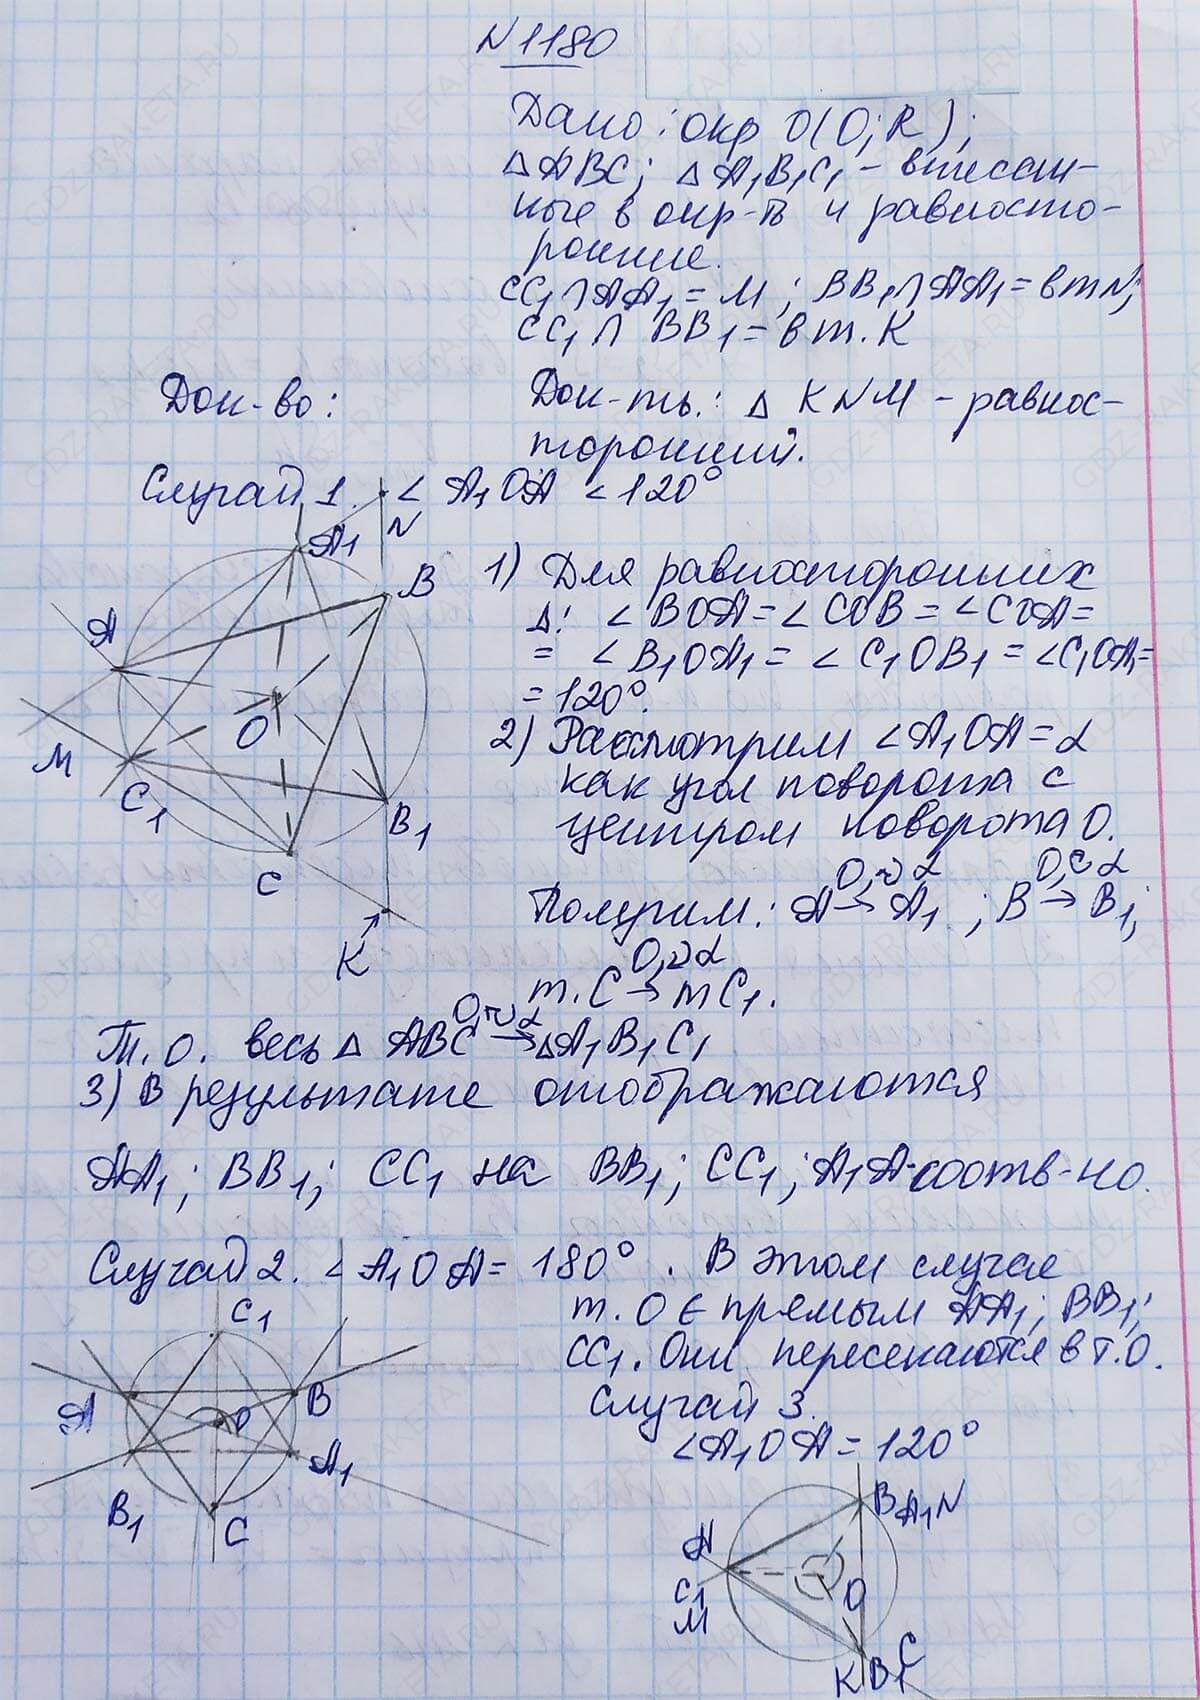 N 1180
Дано: окр О(О; R);
Δ ABC; Δ A₁B₁C₁ - вписан-
ные в окр-ть и равносто-
ронние.
CC₁ ∩ AA₁ = M; BB₁ ∩ AA₁ = в т N;
CC₁ ∩ BB₁ = в т. K
Док-во: Док-ть.: Δ KNM - равнос-
торонний.
Случай 1. ∠ A₁OA < 120°
N
A₁
B
A
O
M
C₁
B₁
C
K
1) Для равносторонних
Δ: ∠ BOA = ∠ COB = ∠ COA =
= ∠ B₁OA₁ = ∠ C₁OB₁ = ∠ C₁OA₁ =
= 120°.
2) Рассмотрим ∠ A₁OA = α
как угол поворота с
центром поворота O.
O, ∪ α O, ∪ α
Получим: A → A₁; B → B₁;
O, ∪ α
т. C → т C₁.
O, ∪ α
Т. о. весь Δ ABC → Δ A₁B₁C₁
3) В результате отображаются
AA₁; BB₁; CC₁ на BB₁; CC₁; A₁A соотв-но.
Случай 2. ∠ A₁OA = 180°. В этом случае
т. O ∈ прямым AA₁; BB₁;
CC₁. Они пересекаются в т. O.
C₁
A
B
O
B₁
A₁
C
Случай 3.
∠ A₁OA = 120°
B A₁ N
A
C₁
M
O
K B₁ C